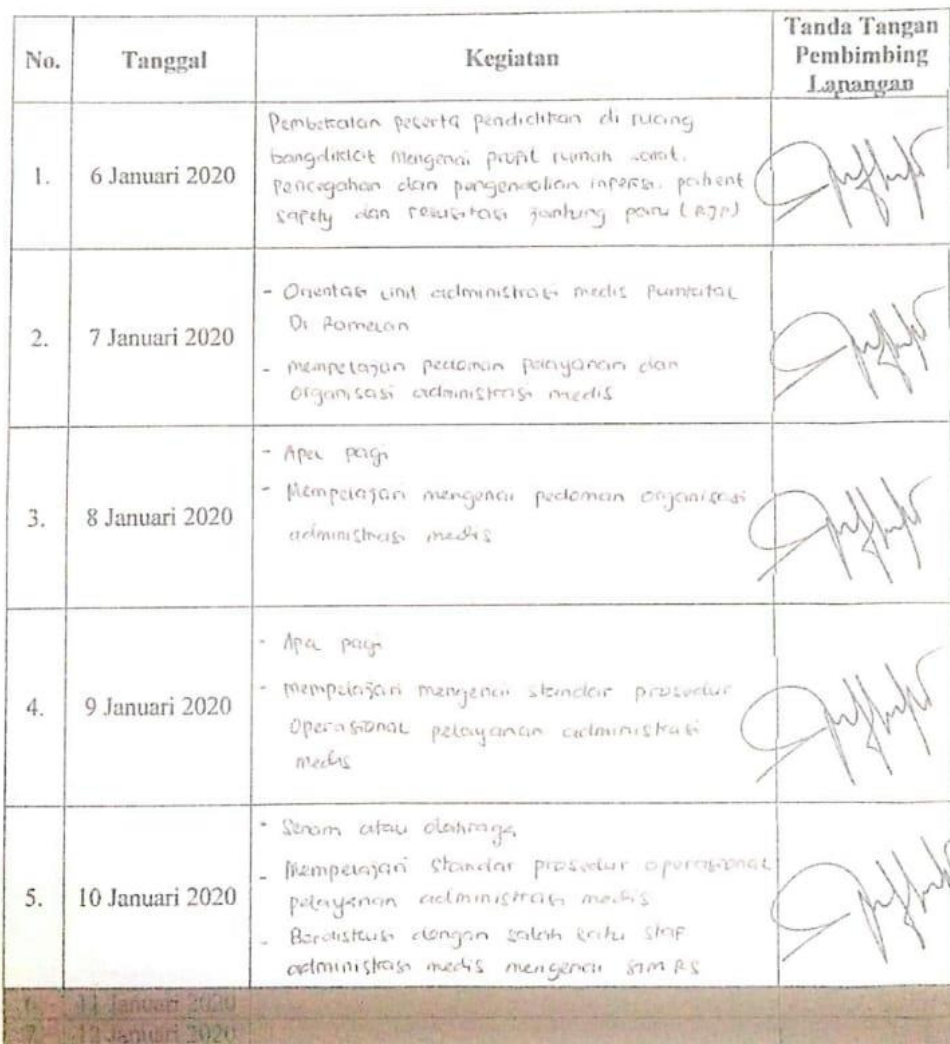 No.
Tanggal
Kegiatan
Tanda Tangan
Pembimbing
Lapangan
1.
6 Januari 2020
Pembekalan peserta pendidikan di ruang
bangdiklat mengenai profil rumah sakit,
pencegahan dan pengendalian infeksi, patient
safety dan resusitasi jantung paru (RJP)
2.
7 Januari 2020
- Orientasi unit administrasi medis Rumkital
Dr Ramelan
- mempelajari pedoman pelayanan dan
organisasi administrasi medis
3.
8 Januari 2020
- Apel pagi
- Mempelajari mengenai pedoman organisasi
administrasi medis
4.
9 Januari 2020
- Apel pagi
- mempelajari mengenai standar prosedur
operasional pelayanan administrasi
medis
5.
10 Januari 2020
- Senam atau olahraga
- Mempelajari standar prosedur operasional
pelayanan administrasi medis
- Berdiskusi dengan salah satu staf
administrasi medis mengenai SIM RS
6.
11 Januari 2020
7.
12 Januari 2020